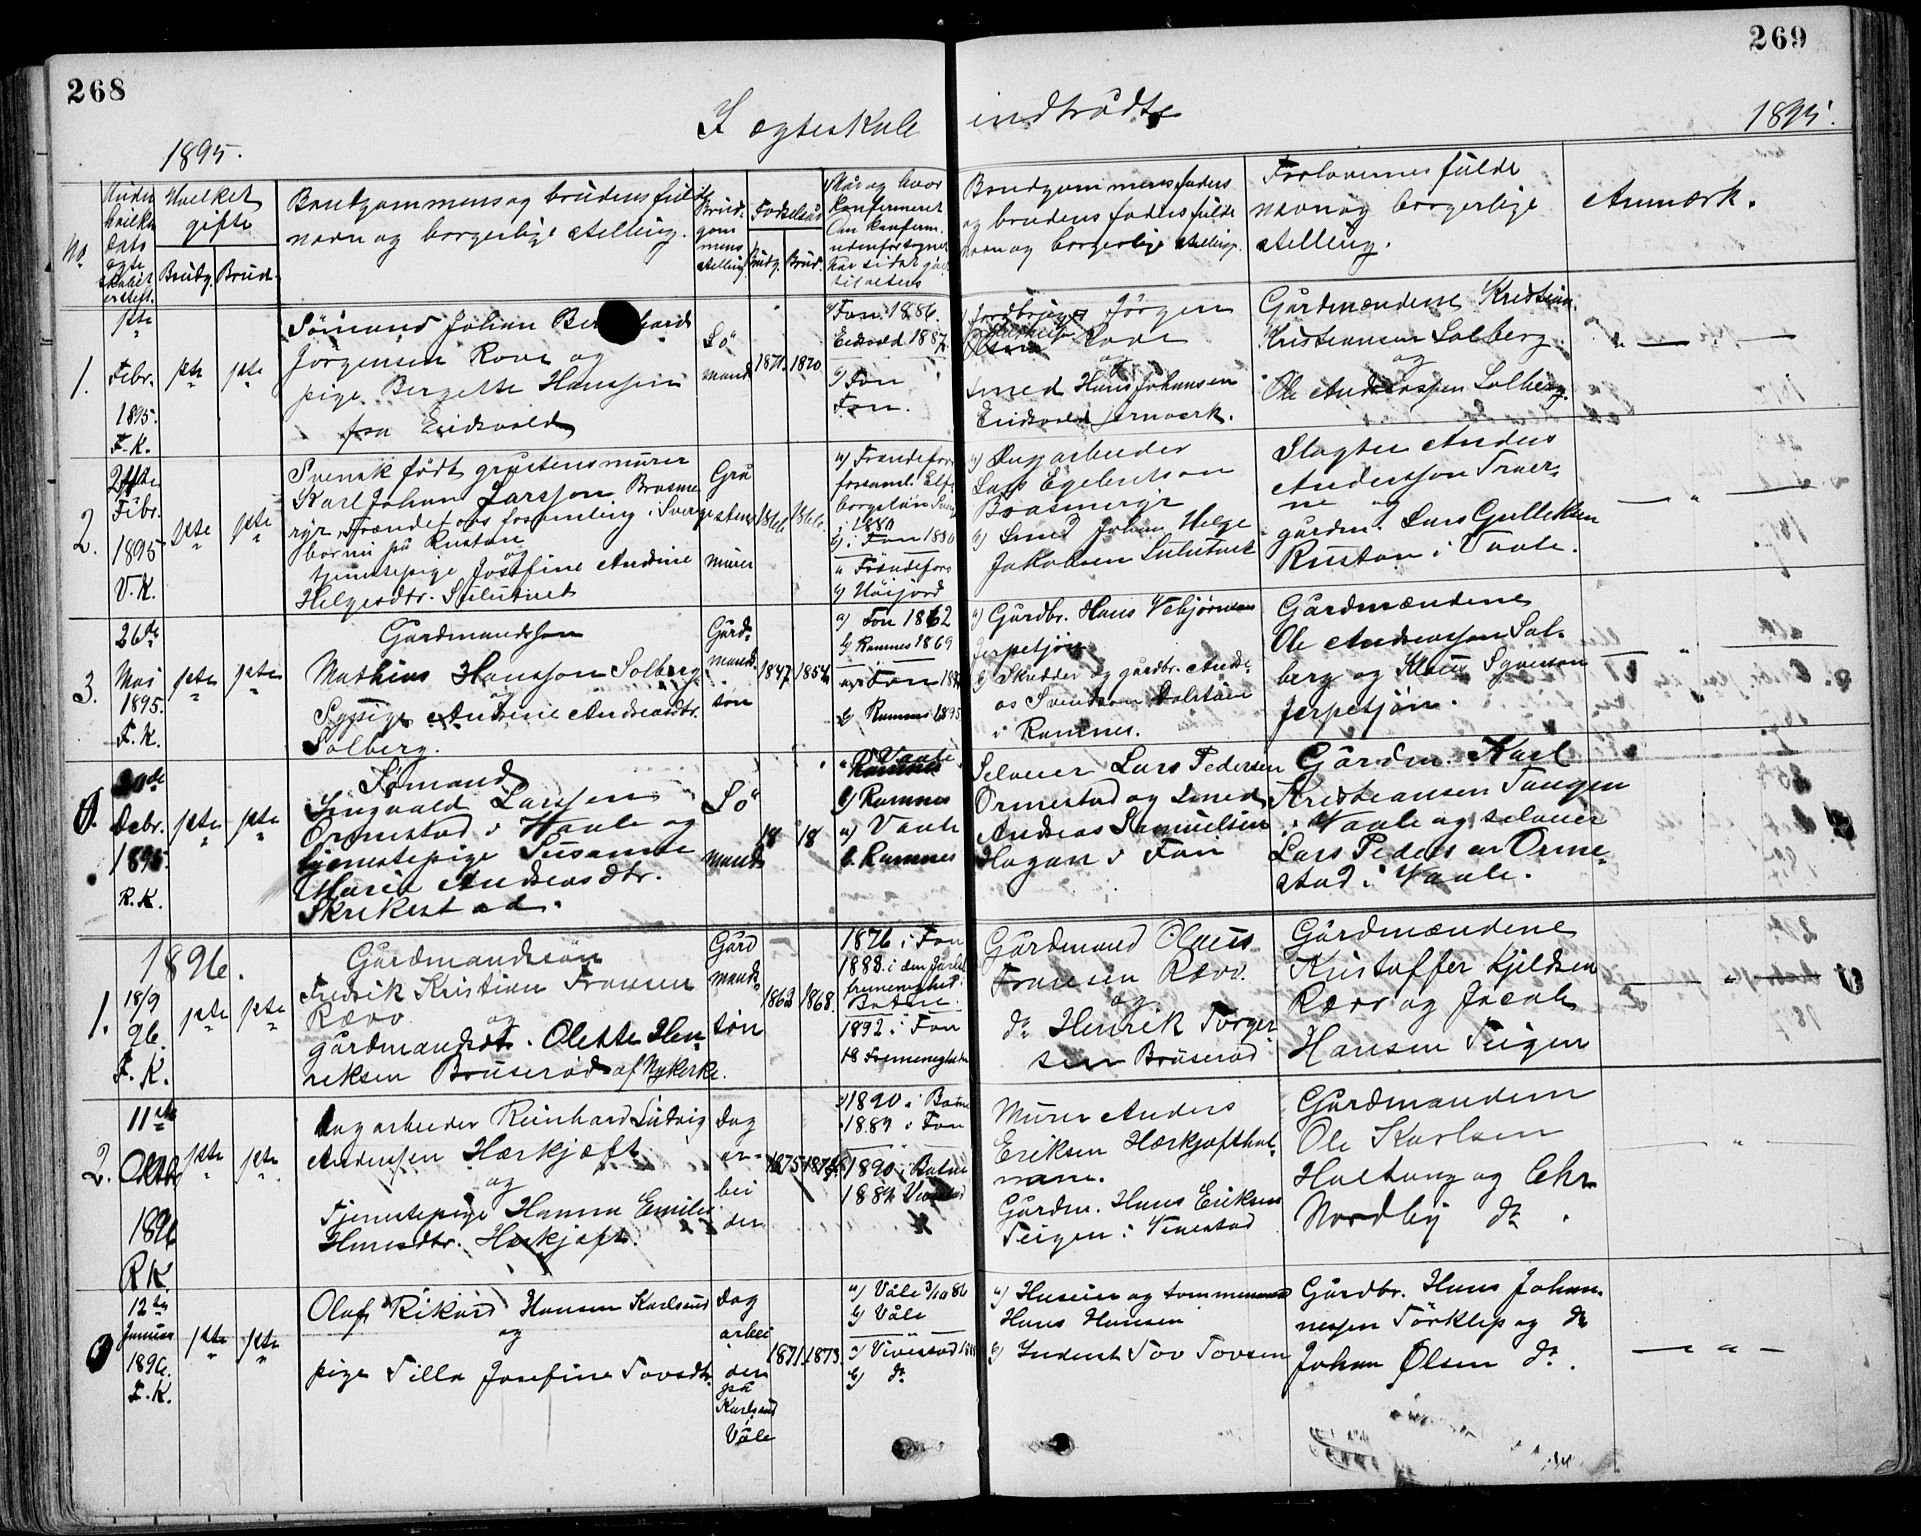 268
269
I ægteskab indtrådte
1895.
1895.
No.
Hvilket gifte
Brudg. Brud.
Brudgommens og brudens fulde
navn og borgerlige stilling.
Brud-
gom
mens
stilling
Fødselsår
Brudg. Brud.
Når og hvor
konfirmeret
Om konfirm.
udenfor sognet
Brudgommens faders
og brudens faders fulde
navn og borgerlige stilling.
Forlovernes fulde
navn og borgerlige
stilling.
Anmærk.
1.
1ste
Febr.
1895.
F. K.
1ste 1ste
Sömand Johan Bernhard
Jörgensen Rove og
pige Bergette Hanssen
fra Eidsvold
Sö
mand
1871. 1870
Fon 1886.
Eidsvold 1887
Fon
Fon.
Jördbruger Jörgen
Rove
og
smed Hans Johansen
Eidsvold jernverk.
Gårdmændene Kristian
Kristiansen Solberg
og
Ole Andreassen Solberg.
2.
24de
Febr.
1895
V. K.
1ste 1ste
Svensk født grustensmurer
Karl Johan Larsson Brosme
ryr, Frændefors forsamling i Sverige
bor nu på Rustan
og
tjenestepige Josefine Andrine
Helgesdtr.
Gru
stens
murer
1866 1866.
a) Frændefors
forsaml. Elfs
borgs län
i 1880
b) i Fon 1880
a Frændefors
b) Höijord
a) Dagarbeider
Lars Egebertson
Brosmeryr
b) Smed Johan Helge
Jakobsen
Slagter Anders
Andersson Traer
ne og
gårdm. Lars Gulleksen
Rustan i Vaale.
3.
26de
Mai
1895.
F. K.
1ste 1ste
Gårdmandssøn
Mathias Hanssen Solberg
og
Sypige Andrine Andreasdtr.
Solberg.
Gård-
mands
søn
1847 1854
a) Fon 1862
b) Ramnes 1869
a) Fon
b) Ramnes 1895
a) Gårdbr. Hans Vebjørnsen
Jerpetjön
b) Skrædder og gårdbr. Andre
as Svendsen
i Ramnes.
Gårdmændene
Ole Andreassen Sol-
berg og Klaus Syversen
Jerpetjön.
Debr.
1895
R. K.
1ste 1ste
Sömand
Singvald Larssen
Ormestad i Vaale og
tjenestepige Susanne
Marie Andreasdtr.
Skrikestad.
Sö
mand
18 18
a) Vaale
b) Ramnes
a) Vaale
b. Ramnes
Selveier Lars Pedersen
Ormestad og smed
Andreas Samuelsen
Hagan i Fon
Gårdm. Karl
Kristiansen Tangen
i Vaale og selveier
Lars Pedersen Orme-
stad i Vaale.
1896.
1.
18/9
96.
F. K.
1ste 1ste
Gårdmandssøn
Fredrik Kristian Fransen
Rævo
og
gårdmandsdt. Olette Hen
riksen Bruserød af Nykirke.
Gård
mands
søn
1862 1868.
1876 i Fon
1883. i den Jarlsb.
frimenighed.
Botne.
1892 i Fon
Frimenigheden
Gårdmand Claus
Fransen Rævo.
og
do Henrik Torger
sen Bruserød
Gårdmændene
Kristoffer Kjeldsen
Rævo og Jacob
Hansen Teigen
2.
11te
Oktbr
1896
R K
1ste 1ste
Dagarbeider Reinhard Ludvig
Anderssen Hærkjæft
og
Tjenestepige Hanna Emilie
Hansdtr. Hærkjæft.
Dag
ar-
bei
der
1875 1874.
1890 i Botne
1889 i Fon
1890 i Botne
1889 Vivestad
Murer Anders
Eriksen Hærkjæfthol
mane.
Gårdm. Hans Eriksen
Teigen i Vivestad
Gårdmændene
Ole Karlsen
Holtung og Chr.
Nordby do.
12te
Januar
1896.
F. K.
1ste 1ste
Olaf Rikard Hansen Karlsrud
og
pige Tilla Josefine Tovsdtr.
Dag
arbei
der
på
Karlsrud
Våle
1871. 1873.
a) Våle 3/10 86
b) Våle
a) Vivestad
b) do
a) Huseier og tømmermand
Hans Hansen
b) Inderst Tov Tovsen
Gårdbr. Hans Johan-
nessen Tørklep og do
Johan Olsen do.